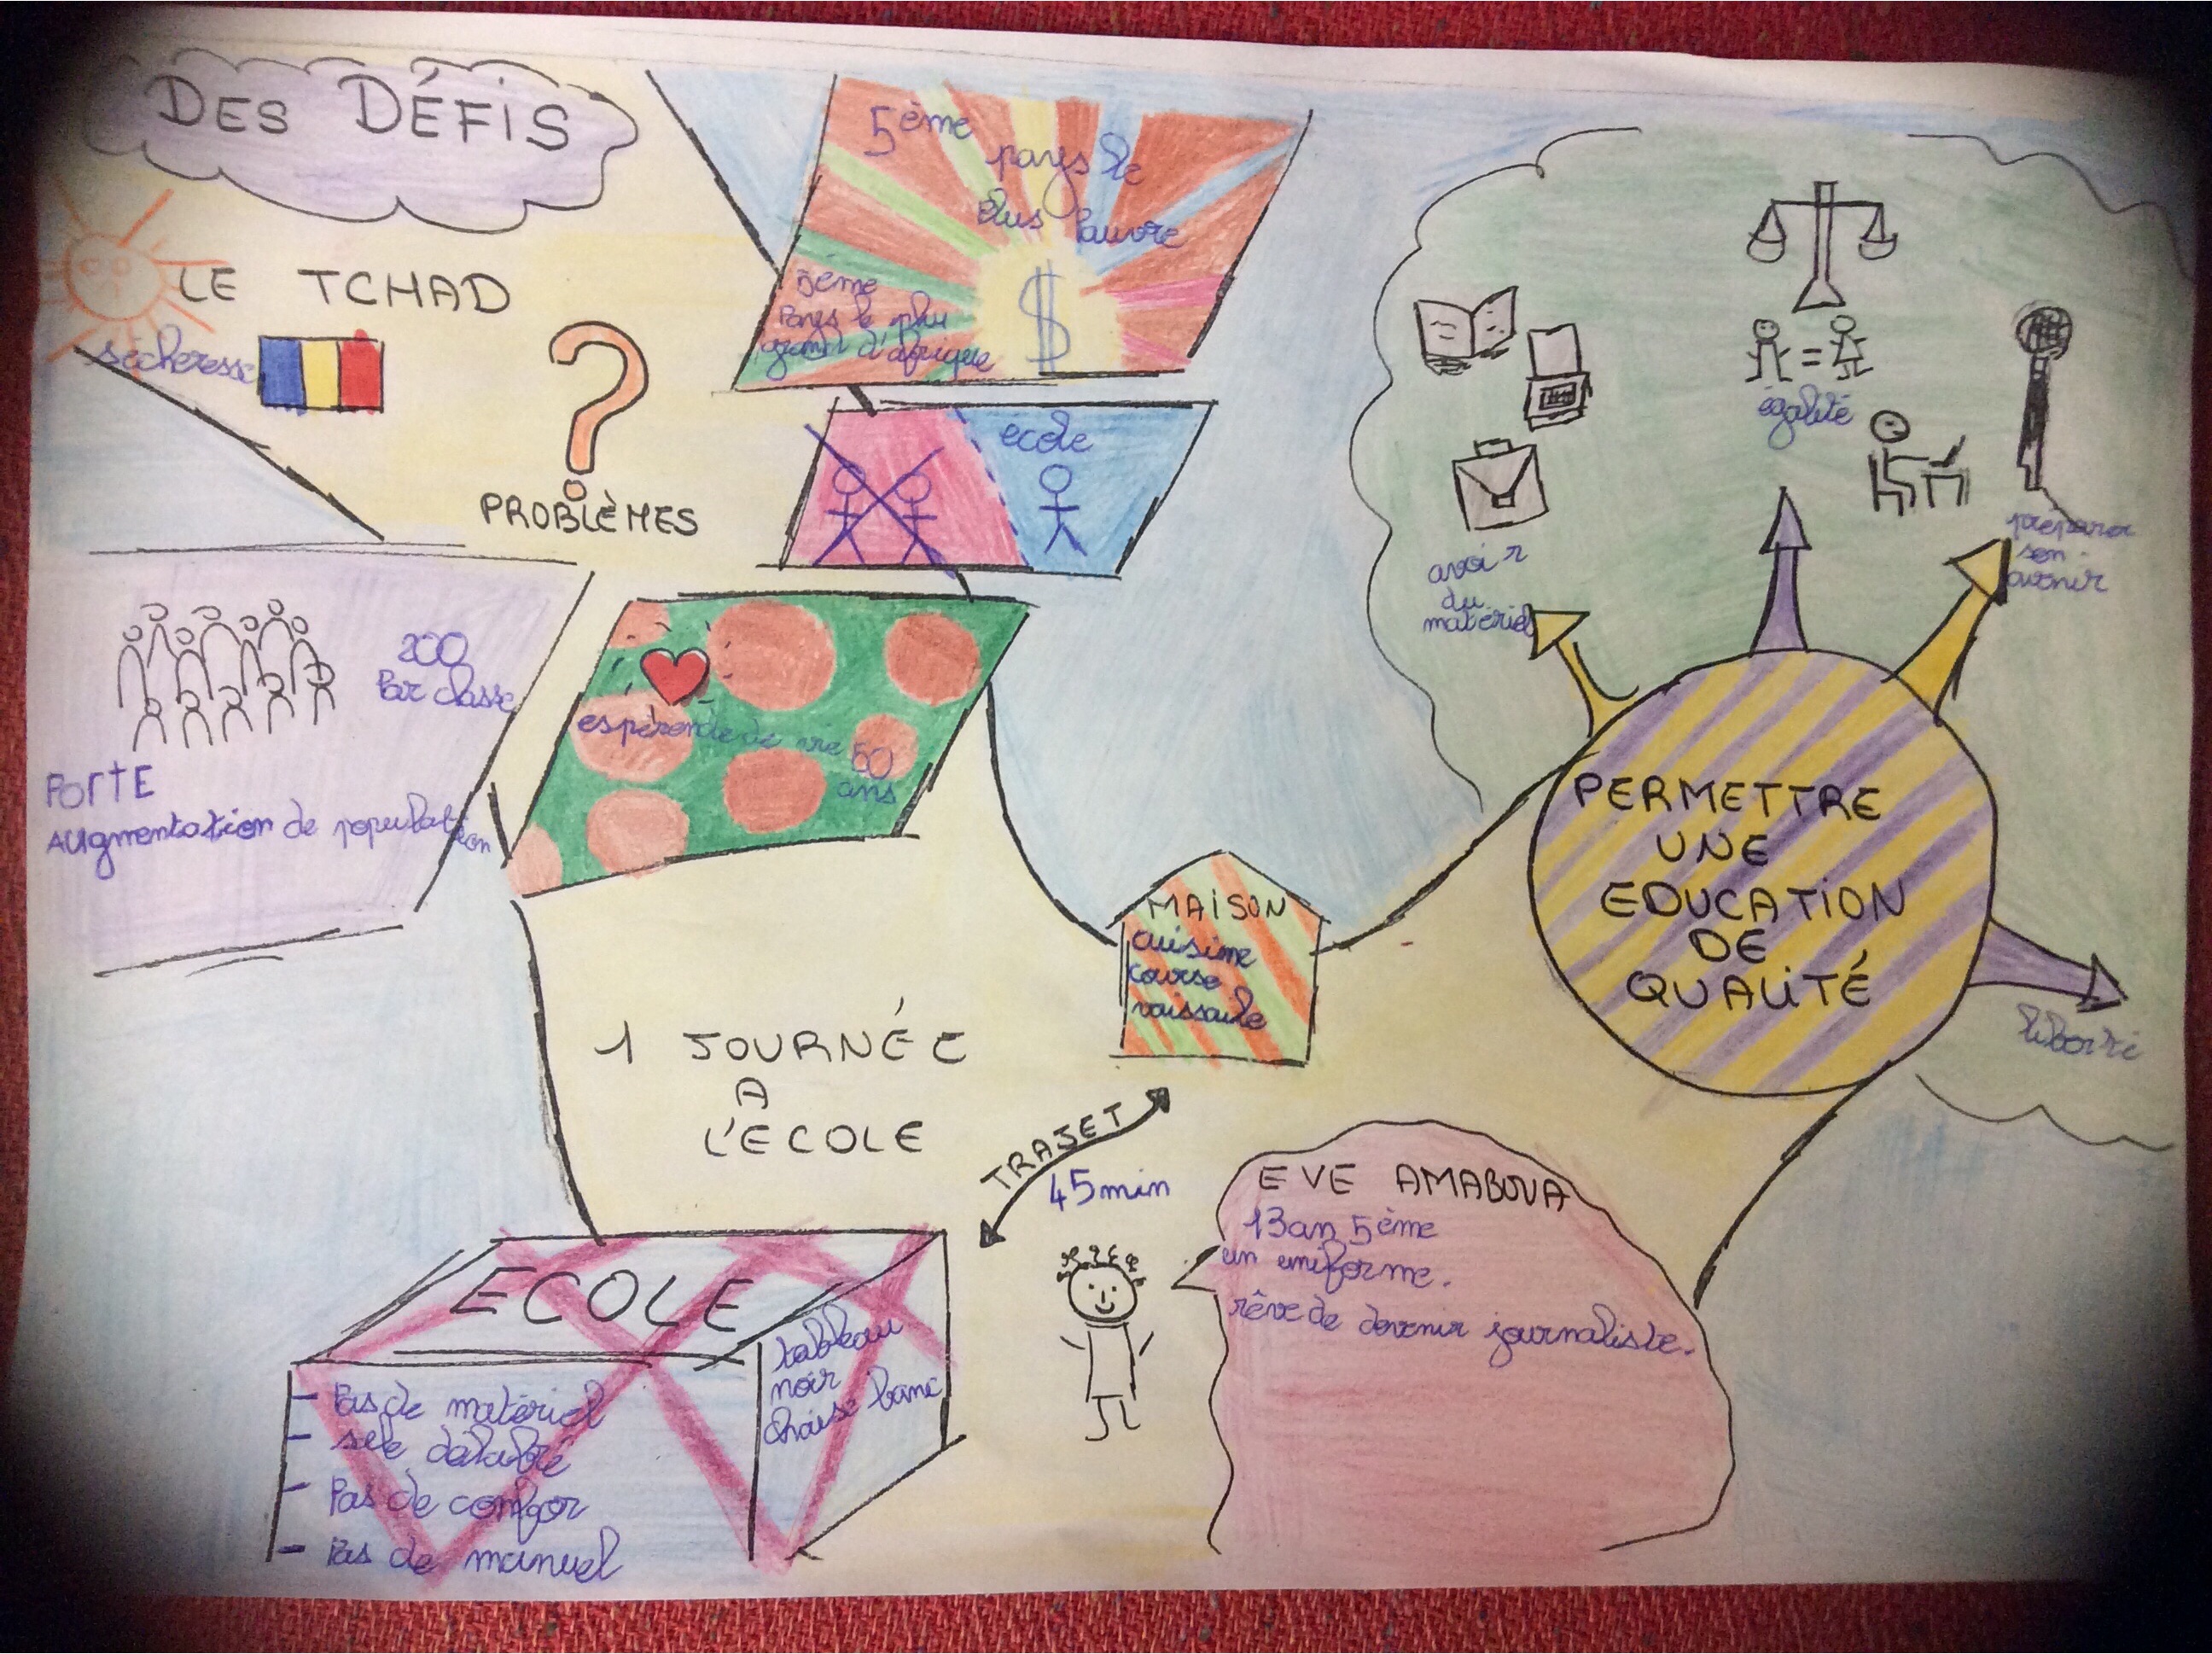 DES DÉFIS
LE TCHAD
sécheresse
PROBLÈMES
5ème
pays le
plus Pauvre
5ème
Pays le plu
grand d'afrique
$
ecole
200
Par classe
FORTE
AUgmentation de population
espérence de vie 50
ans
égalité
avoir
du
matériel
préparer
son
avenir
PERMETTRE
UNE
EDUCATION
DE
QUALITÉ
liberté
MAISON
cuisine
course
vaissaile
1 JOURNÉE
A
L'ECOLE
TRAJET
45min
EVE AMABOUA
13an 5ème
un uniforme.
rêve de devenir journaliste.
ECOLE
- Pas de matériel
- délabré
- Pas de confor
- Pas de manuel
tableau
noir
chaise banc